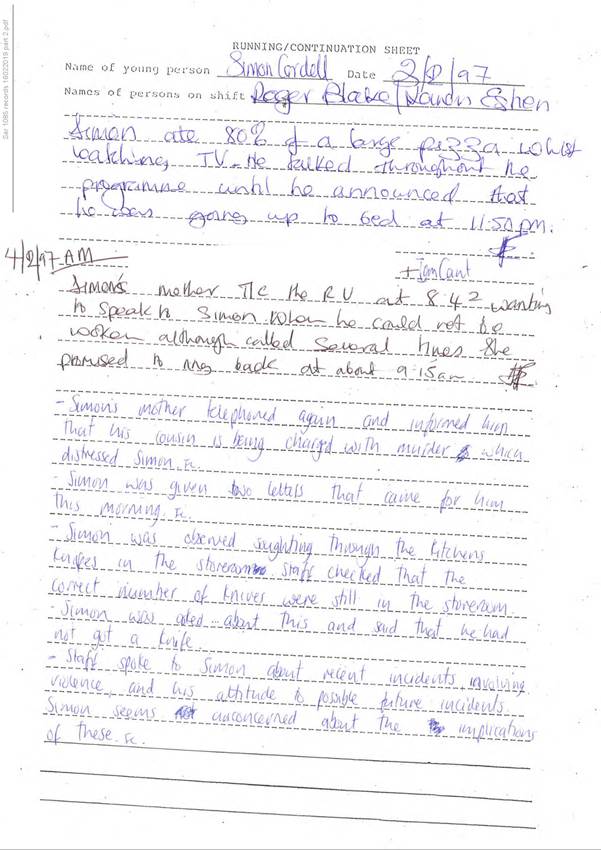 Sar 1085 records 16022019 part 2.pdf
RUNNING/CONTINUATION SHEET
Name of young person Simon Cordell Date 2/2/97
Names of persons on shift Roger Blake/
Simon ate 80% of a large pizza whilst
watching TV. He talked throughout the
programme until he announced that
he was going up to bed at 11:50 pm.
4/2/97 AM
+
Simon's mother T/c the R U at 8.42 wanting
to speak to Simon when he could not be
woken although called several times she
promised to ring back at about 9.15am
- Simon's mother telephoned again and informed him
that his cousin is being charged with murder which
distressed Simon.
- Simon was given two letters that came for him
this morning.
- Simon was observed through the kitchens
knives in the storeroom staff checked that the
correct number of knives were still in the storeroom.
- Simon was asked about this and said that he had
not got a knife.
- Staff spoke to Simon about recent incidents involving
violence, and his attitude to possible future incidents.
Simon seems unconcerned about the implications
of these.